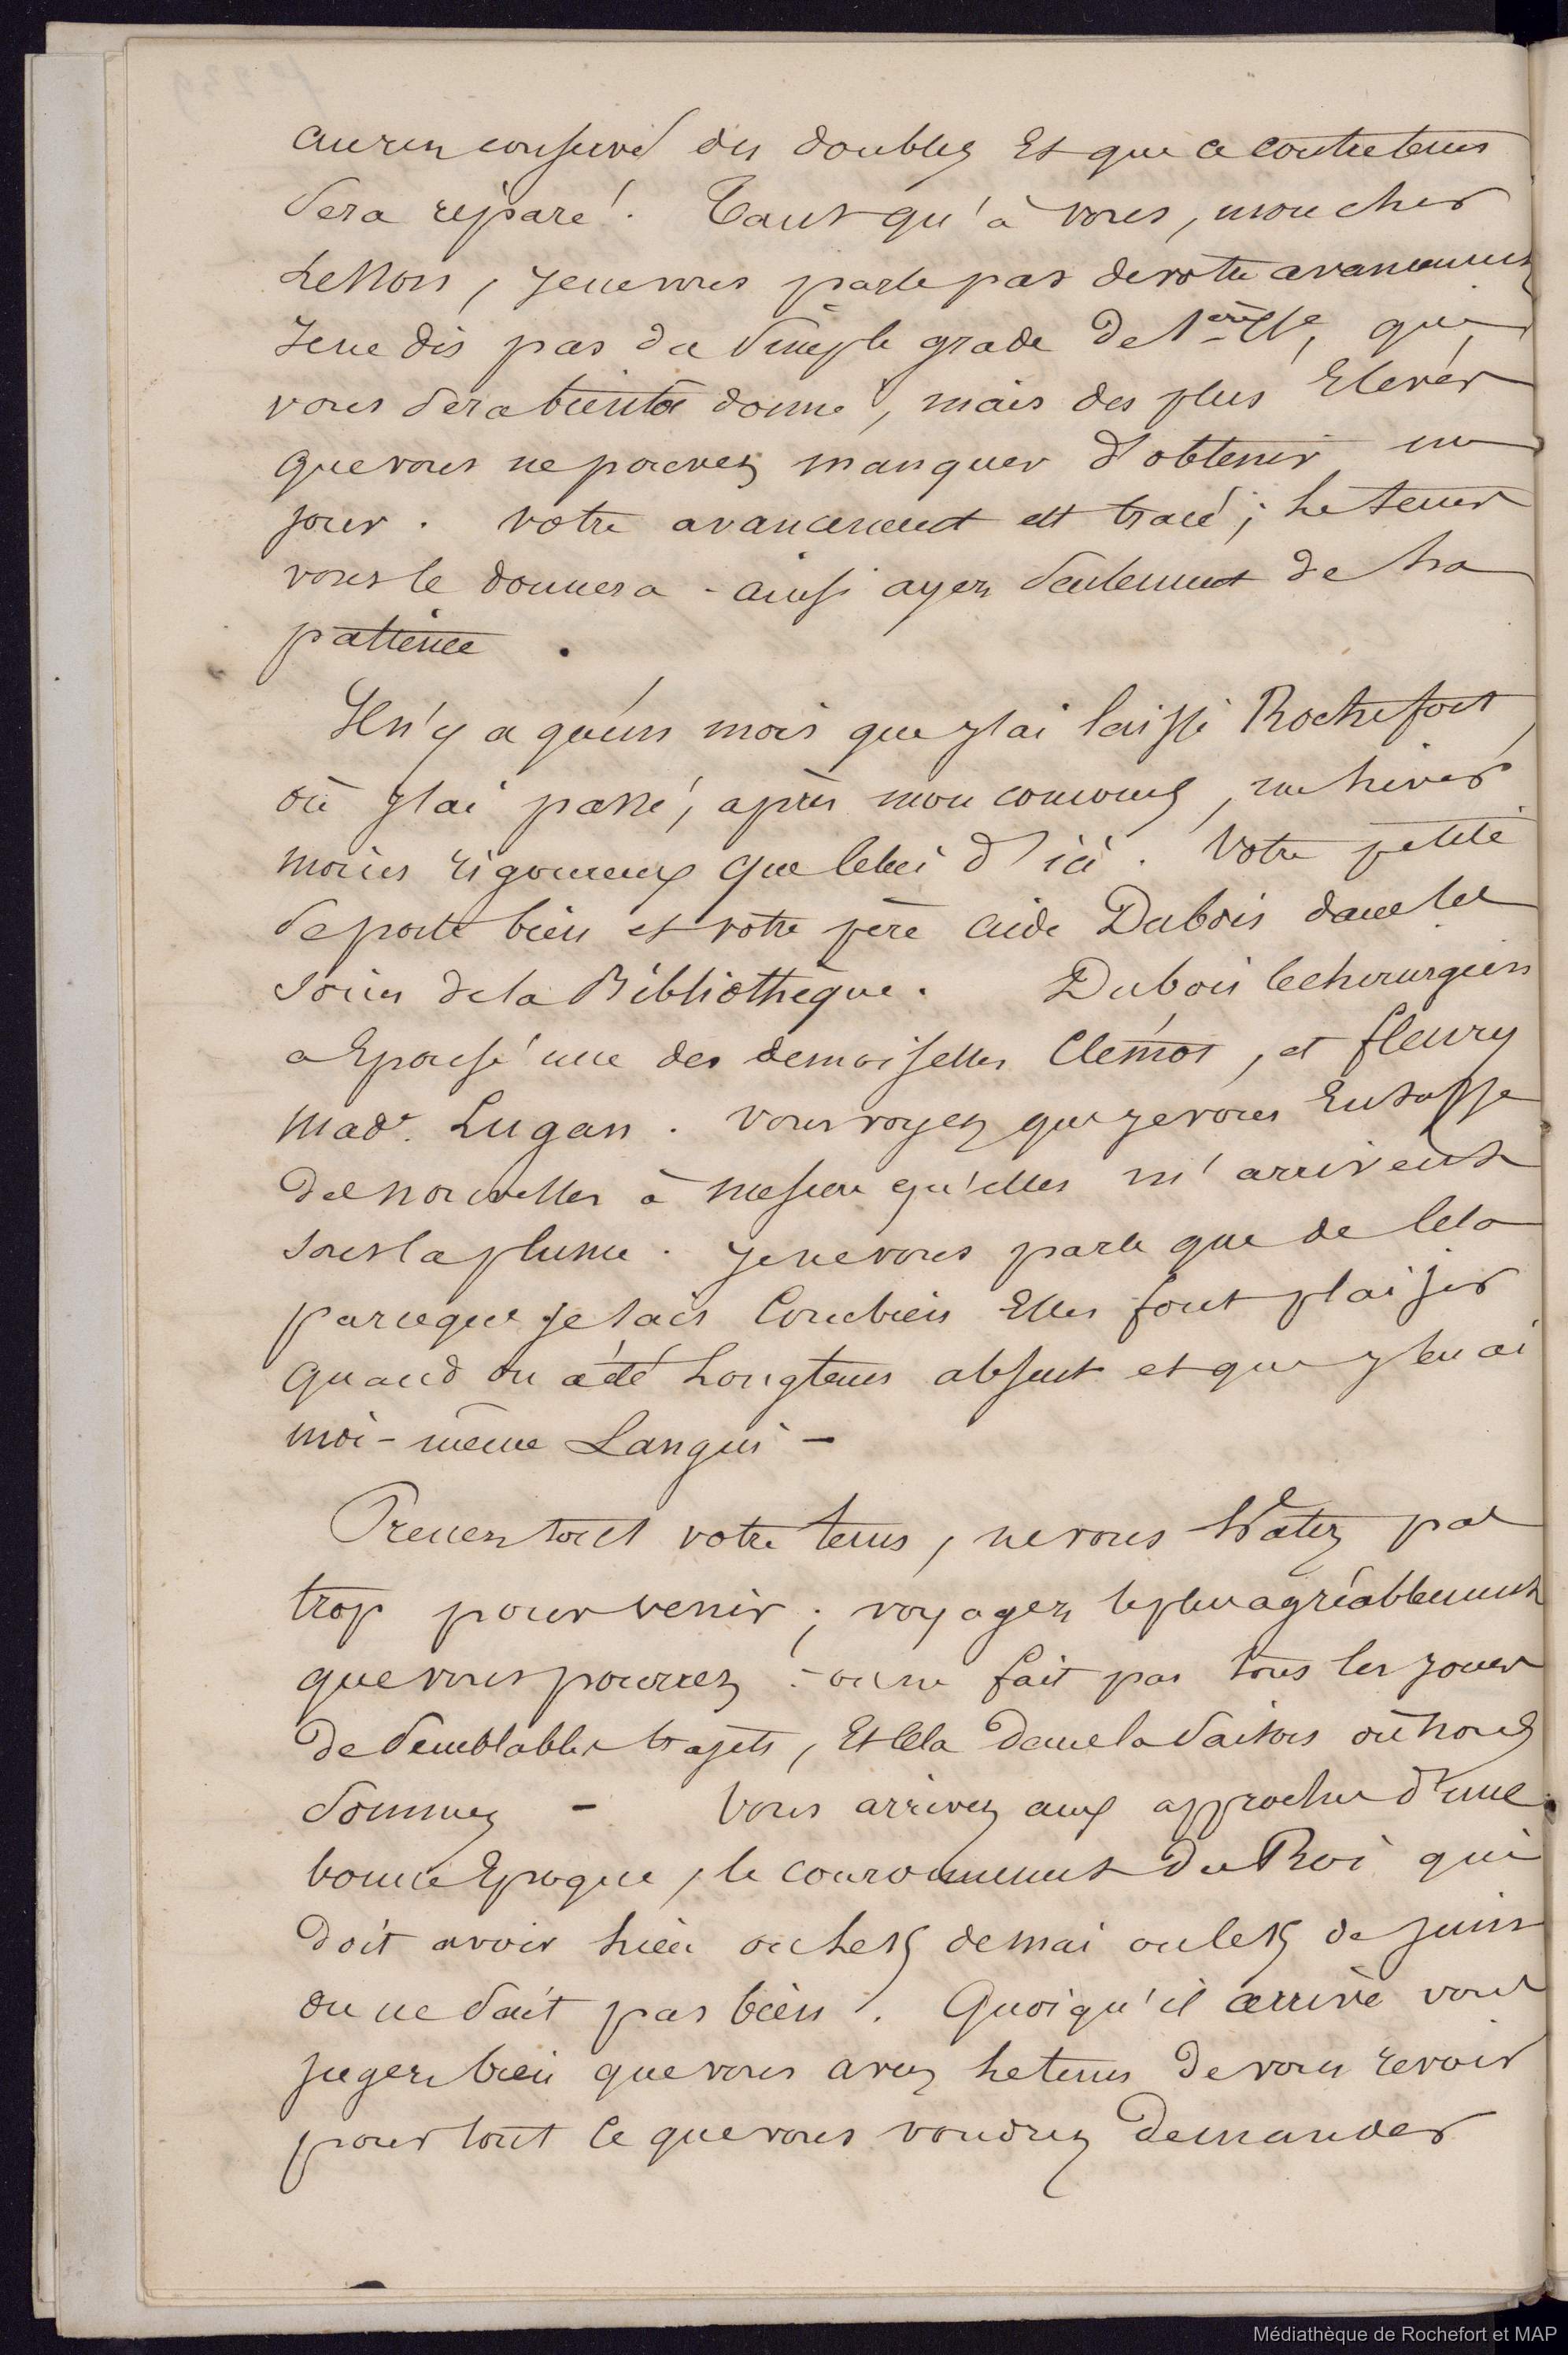 aurez conservé des doubles Et que ce contretems
sera réparé. Tant qu'à vous, mon cher
Lesson, je ne vous parle pas de votre avancement
Je ne dis pas du simple grade de 1ère Clse, qui
vous sera bientôt donné, mais des plus Elevés
que vous ne pouvez manquer d'obtenir un
jour. votre avancement est tracé; le tems
vous le donnera - ainsi ayez seulement de la
patience.
Il n'y a qu'un mois que j'ai laissé Rochefort,
où j'ai passé, après mon concours, un hiver
moins rigoureux que celui d'ici. Votre petite
se porte bien et votre père aide Dubois dans les
soins de la Bibliothèque. Dubois le chirurgien
a Epousé une des demoiselles Clémot, et fleury
Made. Lugan. vous voyez que je vous Entasse
des nouvelles à mesure qu'elles m'arrivent
sous la plume. je ne vous parle que de cela
parceque je sais Combien Elles font plaisir
quand on a été Longtems absent et que j'en ai
moi-même Langui -
Prenez tout votre tems, ne vous hâtez pas
trop pour venir; voyagez le plus agréablement
que vous pourrez - on ne fait pas tous les jours
de semblables trajets, Et cela dans la saison où nous
sommes - Vous arrivez aux approches d'une
bonne Epoque, le couronnement du Roi qui
doit avoir lieu ou le 15 de mai ou le 15 de juin
on ne sait pas bien. Quoiqu'il arrive vous
jugez bien que vous avez le tems de vous revoir
pour tout ce que vous voudrez demander
Médiathèque de Rochefort et MAP